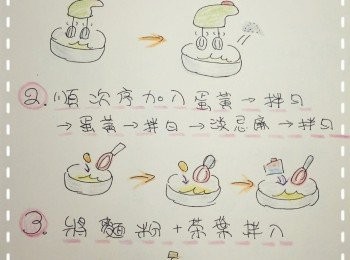 2. 順次序加入蛋黃→拌勻
→蛋黃→拌勻→淡忌廉→拌勻
3. 將麵粉+茶葉拌入